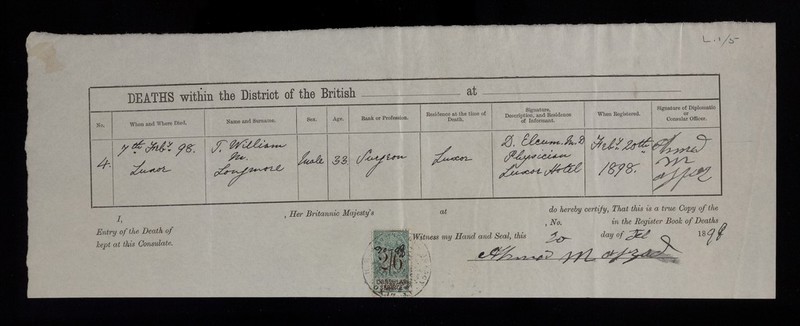 L.1/5
DEATHS within the District of the British at
No. When and Where Died. Name and Surname. Sex. Age. Rank or Profession. Residence at the time of Death. Signature, Description, and Residence of Informant. When Registered. Signature of Diplomatic or Consular Officer.
4. 7th Feby. 98. Luxor J. William M. Longmore Male 33 Surgeon Luxor D. Elcum M.D Physician Luxor Hotel Feby 20th 1898. Ahmed M
I, , Her Britannic Majesty's at do hereby certify, That this is a true Copy of the
Entry of the Death of , No. in the Register Book of Deaths
kept at this Consulate. Witness my Hand and Seal, this 20 day of Feb 1898
2/6
CONSULAR SERVICE
Ahmed M